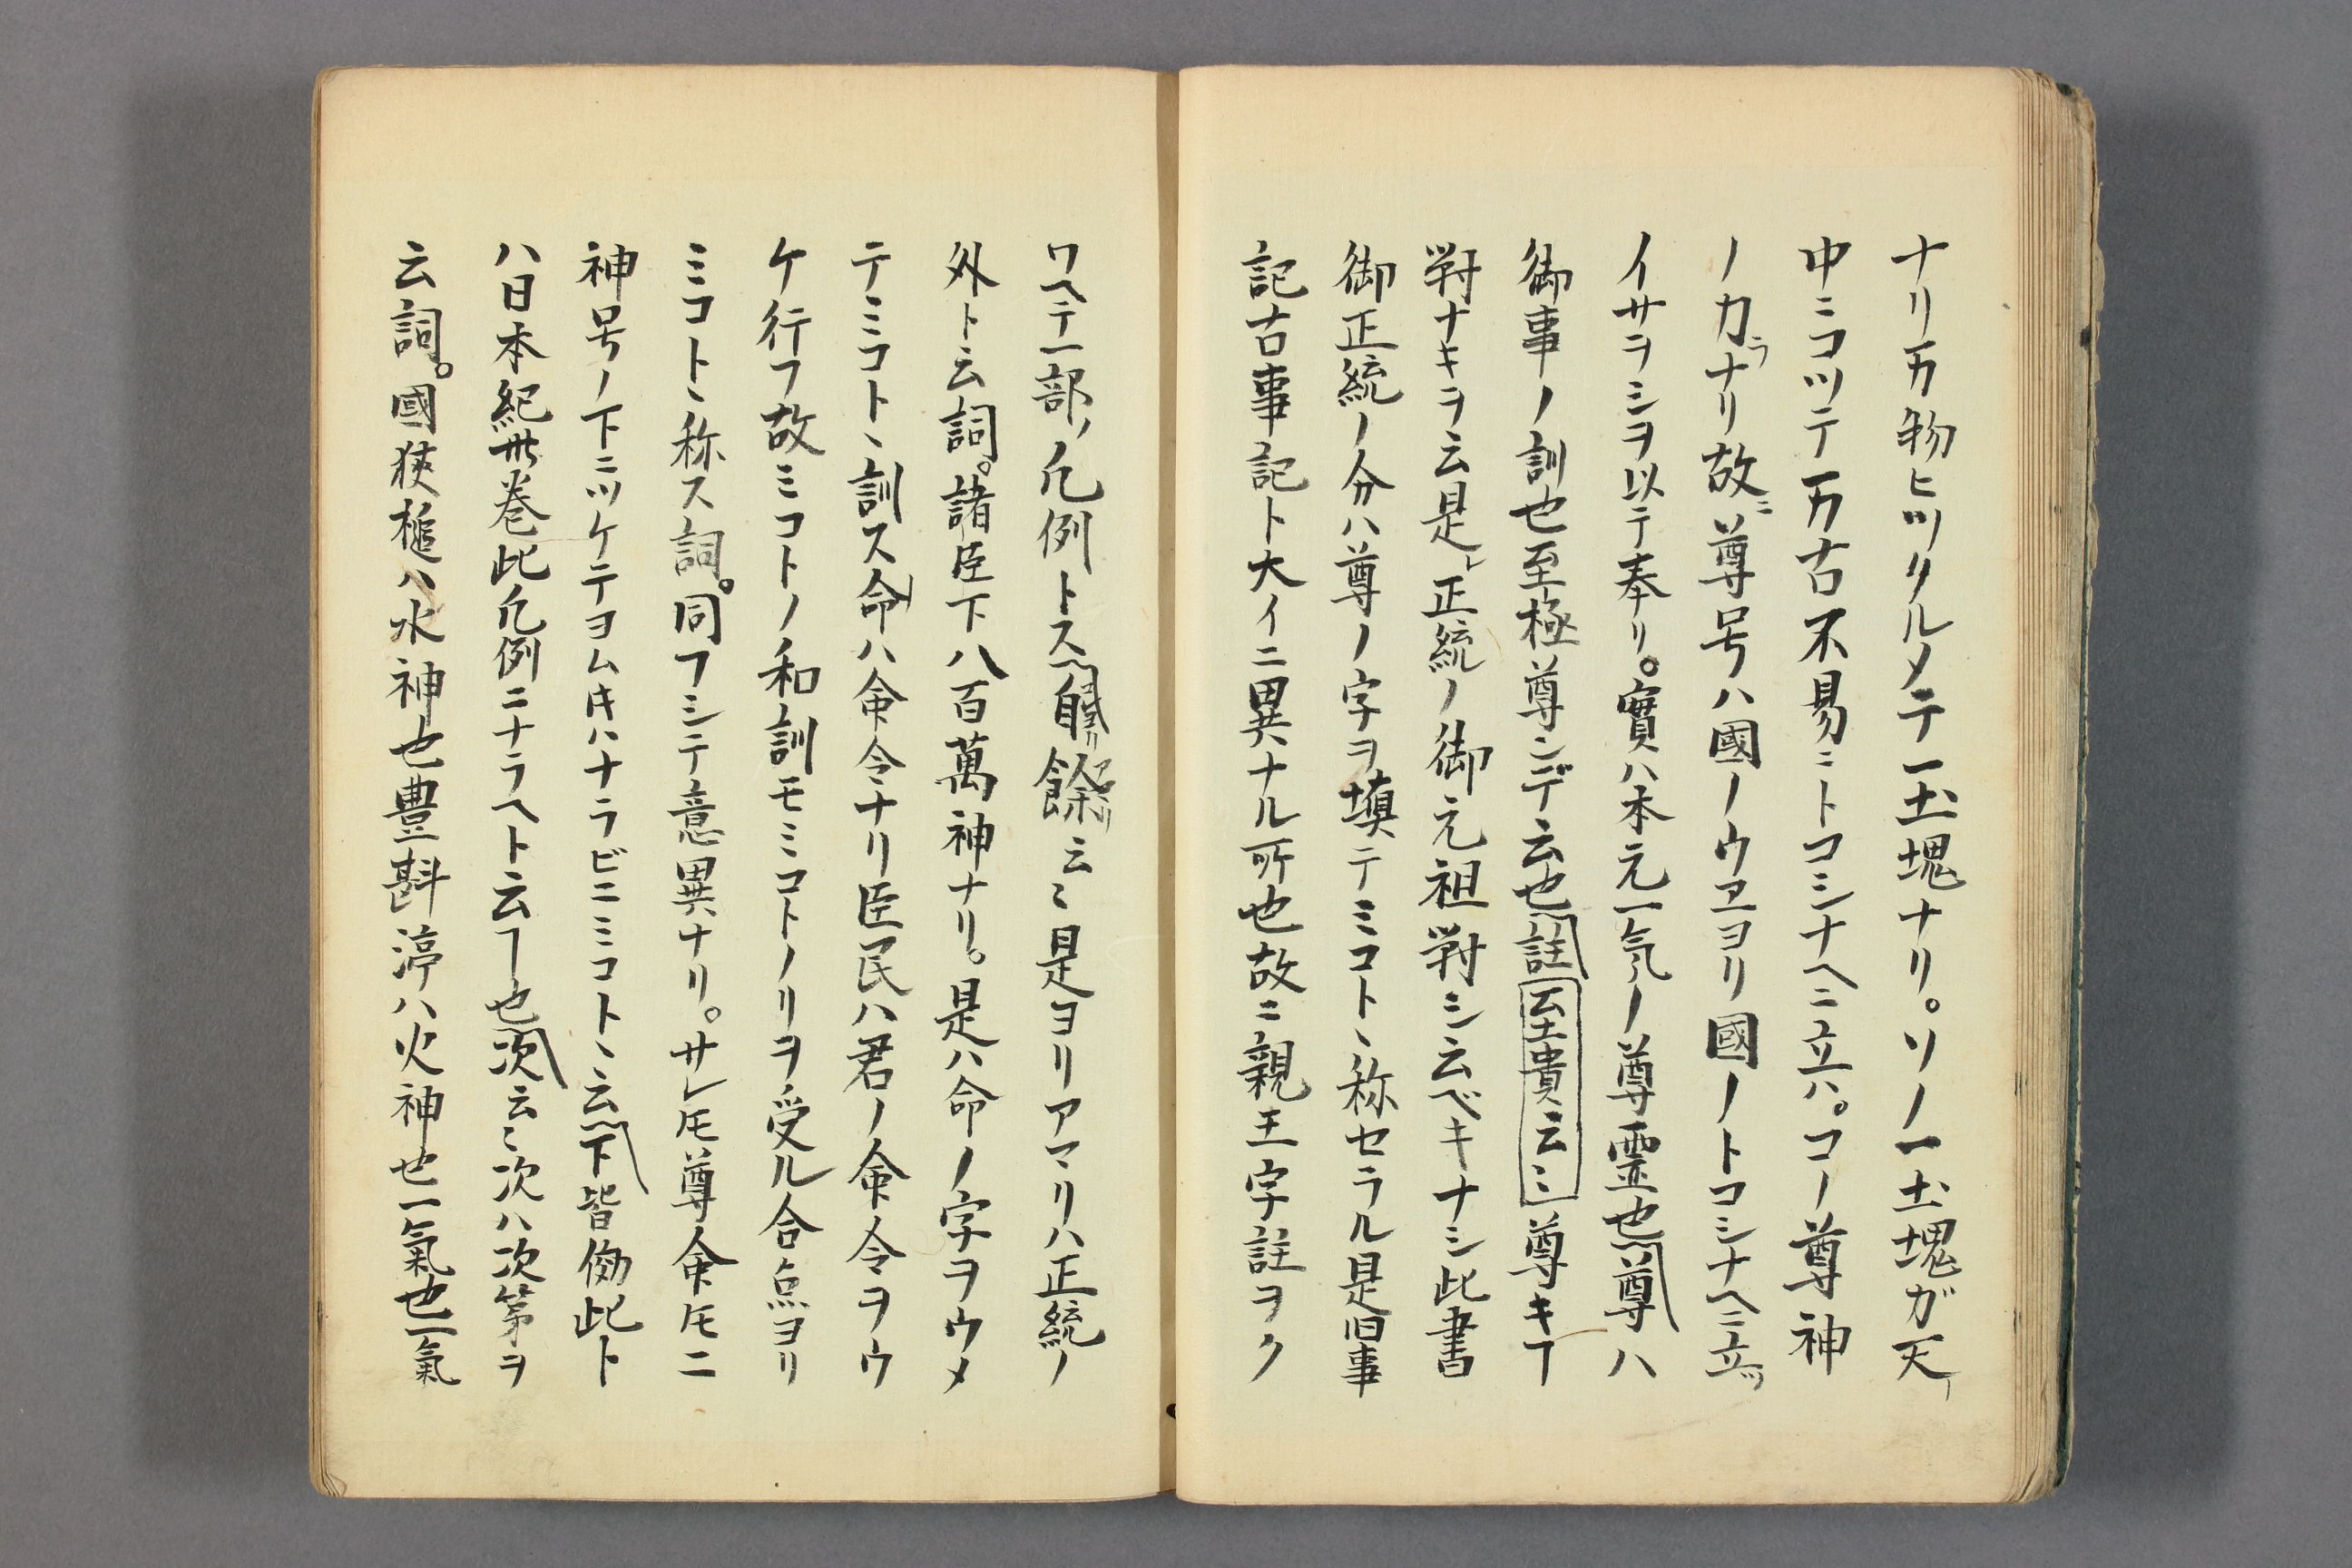 ナリ万物ヒツクルメテ一土塊ナリ。ソノ一土塊ガ天ノ
中ニコツテ万古不易ニトコシナヘニ立ハ。コノ尊神
ノ力ラナリ故ニ尊号ハ國ノウヱヨリ國ノトコシナヘニ立ツ
イサヲシヲ以テ奉リ。實ハ本元一気ノ尊霊也尊ハ
御事ノ訓也至極尊ンデ云也註云至貴云ミ尊キヿ
對ナキヲ云是ト正統ノ御元祖對シ云ベキナシ此書
御正統ノ分ハ尊ノ字ヲ填テミコトヽ称セラル是旧事
記古事記ト大イニ異ナル所也故ニ親王字註ヲク
ワヘテ一部ノ凡例トス自リ餘云ミ是ヨリアマリハ正統ノ
外ト云詞。諸臣下八百萬神ナリ。是ハ命ノ字ヲウメ
テミコトヽ訓ス命ハ命令ナリ臣民ハ君ノ命令ヲウ
ケ行フ故ミコトノ和訓モミコトノリヲ受ル合点ヨリ
ミコトヽ称ス詞。同フシテ意異ナリ。サレ𪜈尊命𪜈ニ
神号ノ下ニツケテヨムキハナラビニミコトヽ云下皆倣此ト
ハ日本紀卅巻此凡例ニナラヘト云ヿ也次云ミ次ハ次第ヲ
云詞。國狭槌ハ水神也豊斟渟ハ火神也一氣也一氣